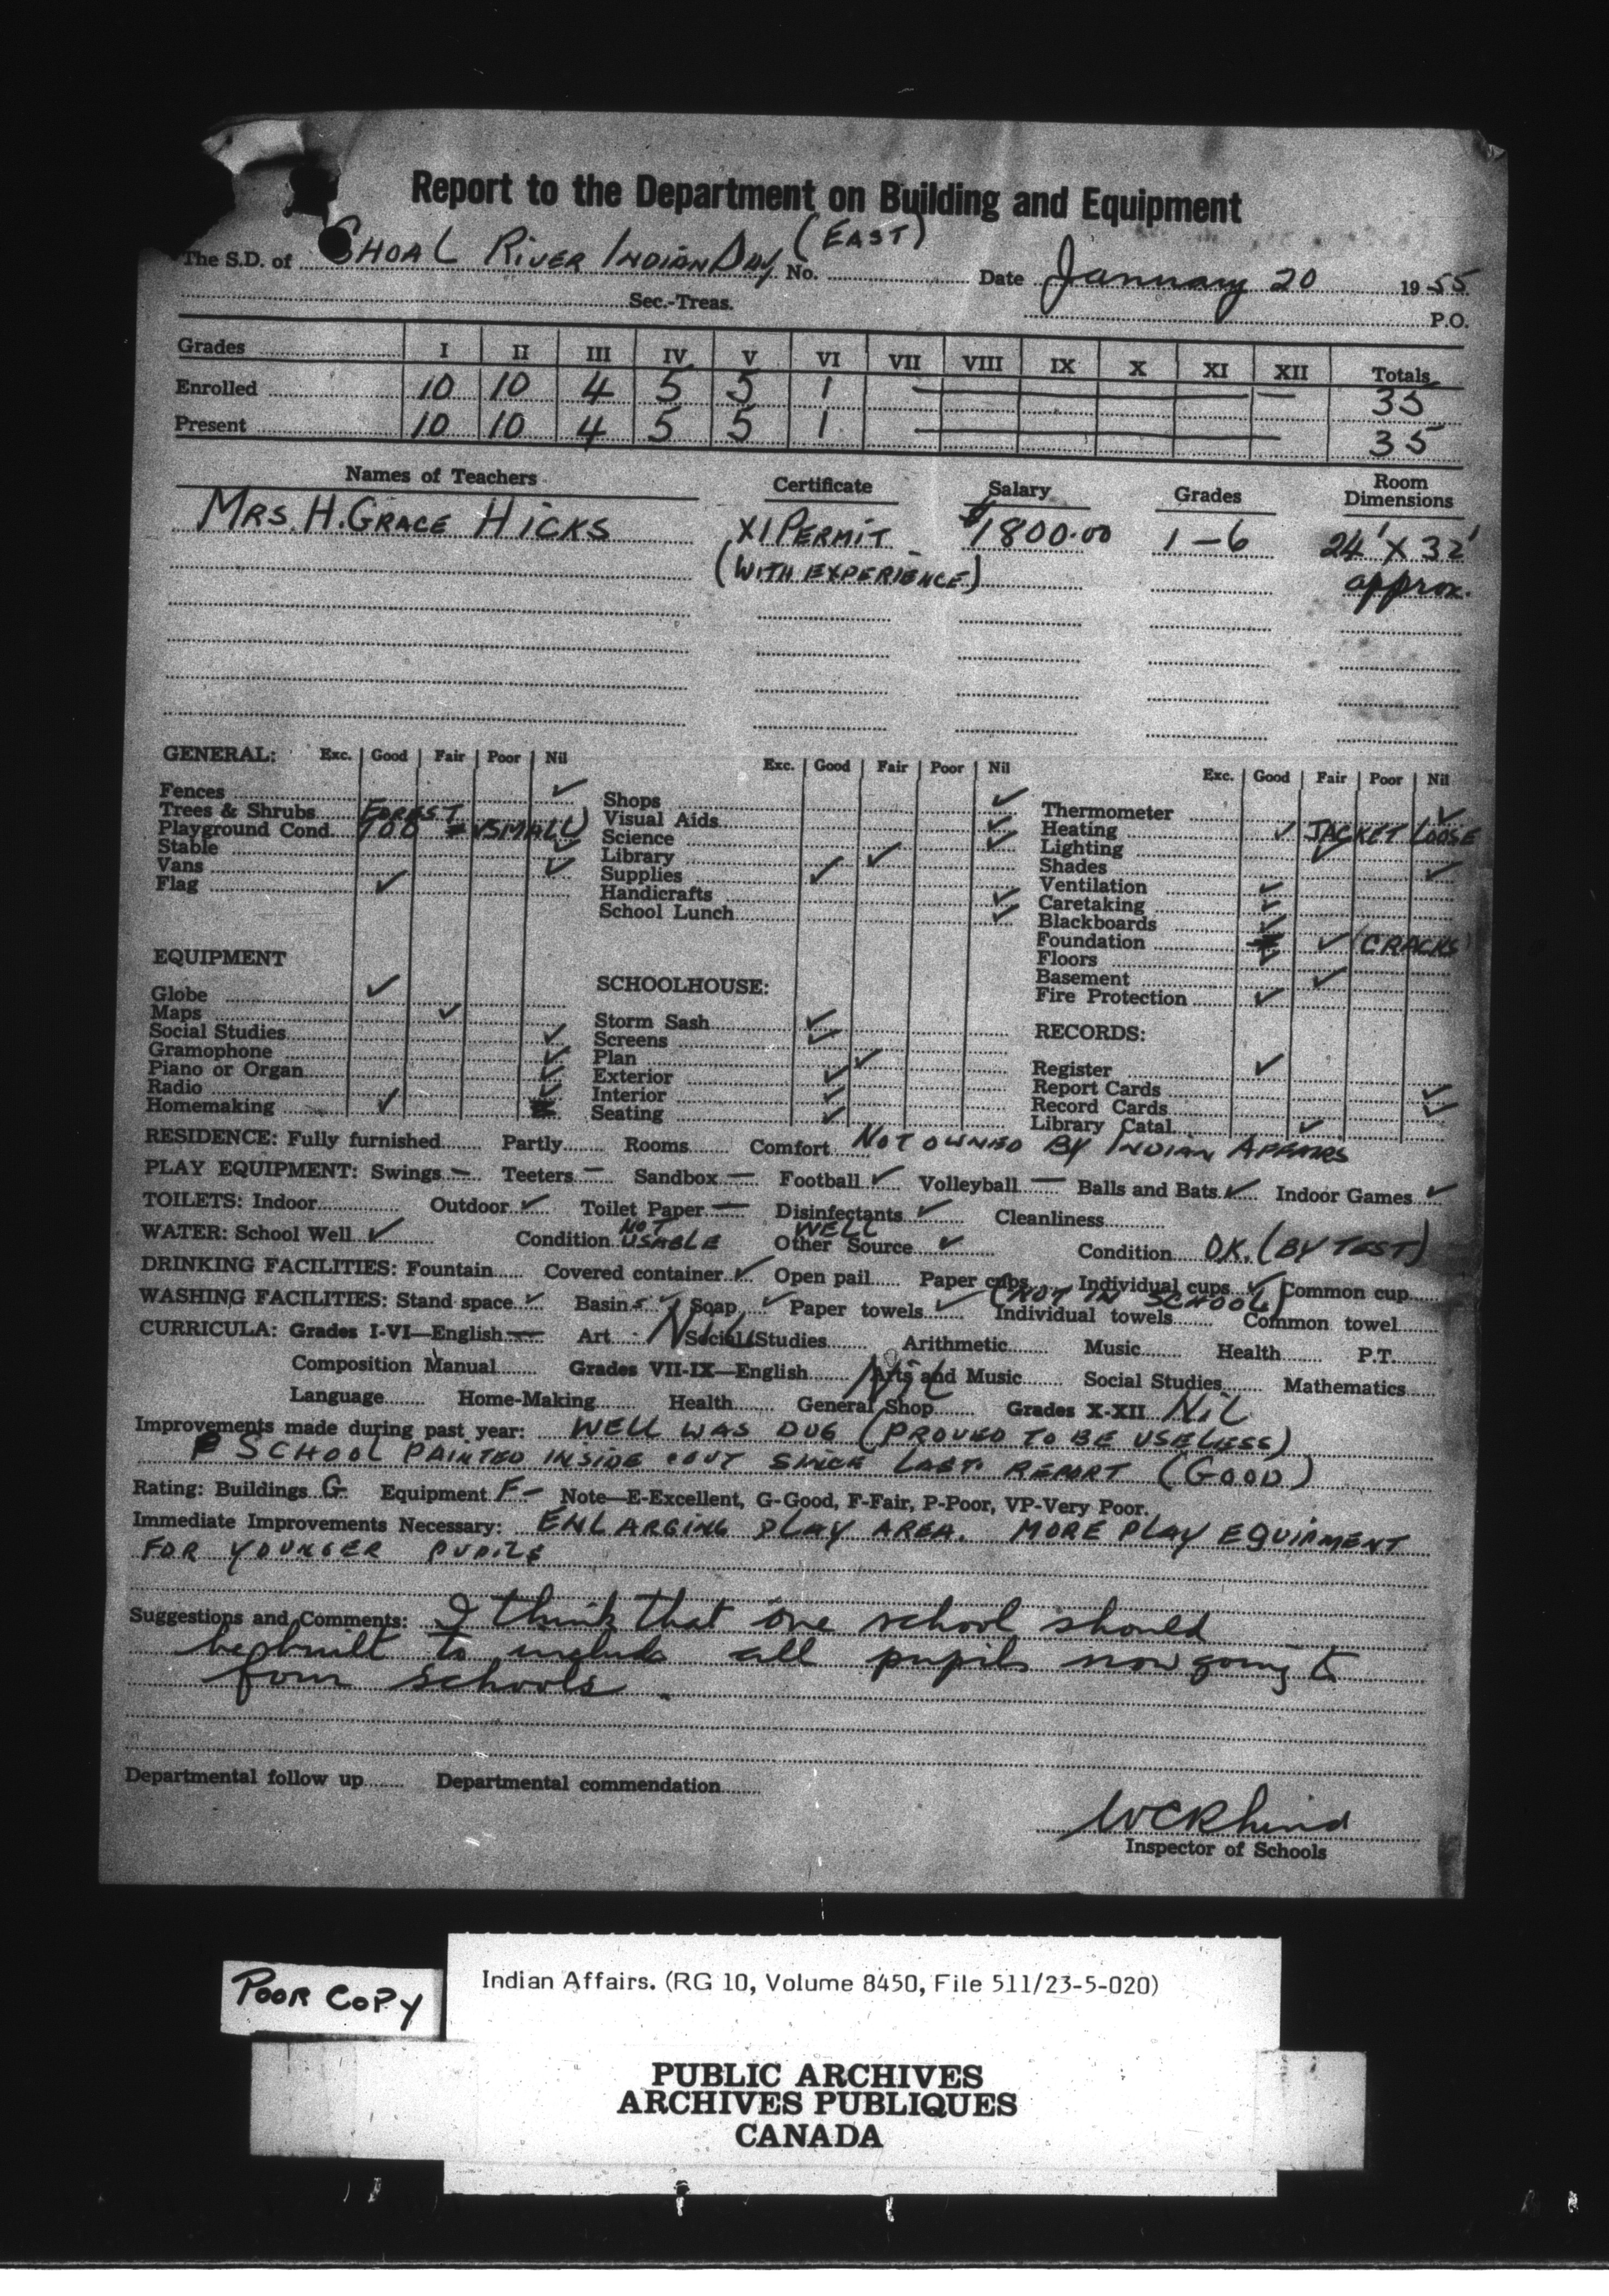 Report to the Department on Building and Equipment
The S.D. of SHOAL RIVER INDIAN DAY (EAST) No. Date January 20 1955
Sec.-Treas. P.O.
Grades I II III IV V VI VII VIII IX X XI XII Totals
Enrolled 10 10 4 5 5 1 35
Present 10 10 4 5 5 1 35
Names of Teachers Certificate Salary Grades Room Dimensions
MRS. H. GRACE HICKS XI PERMIT $1800.00 1-6 24' X 32'
(WITH EXPERIENCE) approx.
GENERAL: Exc. Good Fair Poor Nil
Fences ✓
Trees & Shrubs FOREST
Playground Cond. TOO SMALL)
Stable ✓
Vans ✓
Flag ✓
EQUIPMENT
Globe ✓
Maps ✓
Social Studies ✓
Gramophone ✓
Piano or Organ ✓
Radio ✓
Homemaking ✓
Exc. Good Fair Poor Nil
Shops ✓
Visual Aids ✓
Science ✓
Library ✓
Supplies ✓
Handicrafts ✓
School Lunch ✓
SCHOOLHOUSE:
Storm Sash ✓
Screens ✓
Plan ✓
Exterior ✓
Interior ✓
Seating ✓
Exc. Good Fair Poor Nil
Thermometer ✓
Heating ✓ JACKET LOOSE
Lighting ✓
Shades ✓
Ventilation ✓
Caretaking ✓
Blackboards ✓
Foundation ✓ (CRACKS)
Floors ✓
Basement ✓
Fire Protection ✓
RECORDS:
Register ✓
Report Cards ✓
Record Cards ✓
Library Catal. ✓
RESIDENCE: Fully furnished Partly Rooms Comfort NOT OWNED BY INDIAN AFFAIRS
PLAY EQUIPMENT: Swings — Teeters — Sandbox — Football ✓ Volleyball — Balls and Bats ✓ Indoor Games ✓
TOILETS: Indoor Outdoor ✓ Toilet Paper — Disinfectants ✓ Cleanliness
WATER: School Well ✓ Condition NOT USABLE Other Source WELL ✓ Condition O.K. (BY TEST)
DRINKING FACILITIES: Fountain Covered container ✓ Open pail Paper cups Individual cups ✓ Common cup
WASHING FACILITIES: Stand space ✓ Basin ✓ Soap ✓ Paper towels ✓ (NOT IN SCHOOL) Individual towels Common towel
CURRICULA: Grades I-VI—English — Art Nil Social Studies Arithmetic Music Health P.T.
Composition Manual Grades VII-IX—English Nil Arts and Music Social Studies Mathematics
Language Home-Making Health General Shop Grades X-XII Nil
Improvements made during past year: WELL WAS DUG (PROVED TO BE USELESS)
SCHOOL PAINTED INSIDE & OUT SINCE LAST REPORT (GOOD)
Rating: Buildings G Equipment F- Note—E-Excellent, G-Good, F-Fair, P-Poor, VP-Very Poor.
Immediate Improvements Necessary: ENLARGING PLAY AREA. MORE PLAY EQUIPMENT
FOR YOUNGER PUPILS
Suggestions and Comments: I think that one school should
be built to include all pupils now going to
four schools.
Departmental follow up Departmental commendation
WCRhind
Inspector of Schools
POOR COPY
Indian Affairs. (RG 10, Volume 8450, File 511/23-5-020)
PUBLIC ARCHIVES
ARCHIVES PUBLIQUES
CANADA